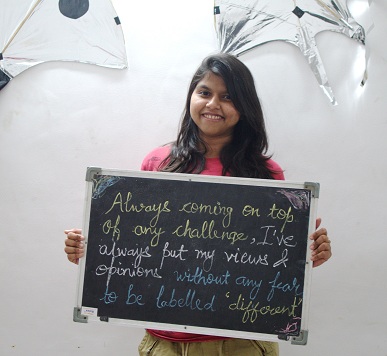 Always coming on top
of any challenge, I've
always put my views &
opinions without any fear
to be labelled 'different'